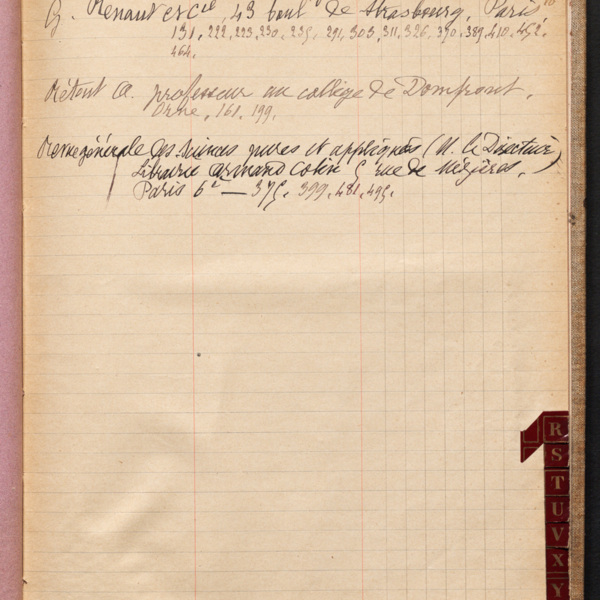 G. Renault et Cie 43 boul.d de Strasbourg, Paris 10
131. 222. 223. 230. 235. 291. 303. 311. 326. 370. 389. 410. 452.
464.
Rétout A. professeur au collège de Domfront.
Orne, 161. 199.
Revue générale des Sciences pures et appliquées (M. le Directeur)
Librairie Armand Colin 5 rue de Mézières.
Paris 6e — 375. 399. 481. 495.
R
S
T
U
V
X
Y